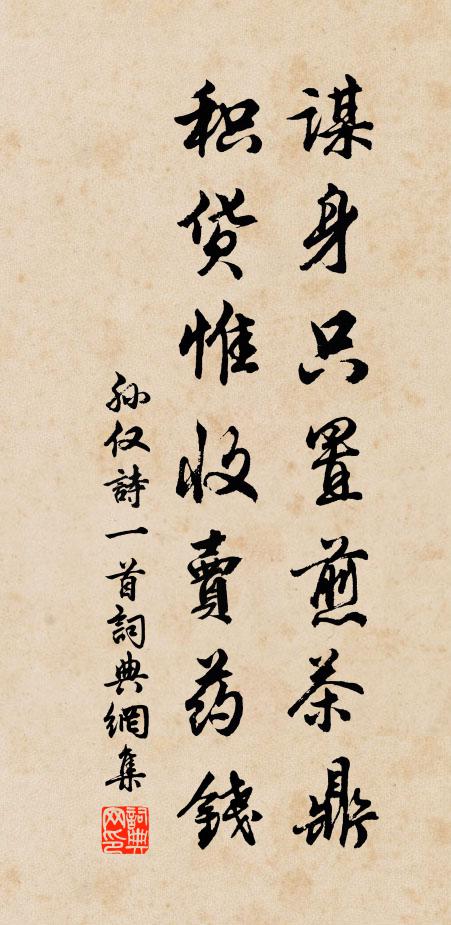 謀身只置煎茶鼎
积货惟收賣药錢
孙仅詩一首詞典網集
詞典网印